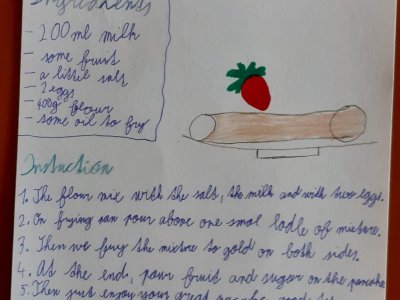 Ingredients
- 200 ml milk
- some fruit
- a little salt
- 2 eggs
- 400g flour
- some oil to fry
Instuction
1. The flour mix with the salt, the milk and with two eggs.
2. On frying pan pour above one smal ladle of mixture.
3. Then we fury the mixture to gold on both sides.
4. At the end, pour fruit and sugger on the pancake
5. Then just enjoy your great